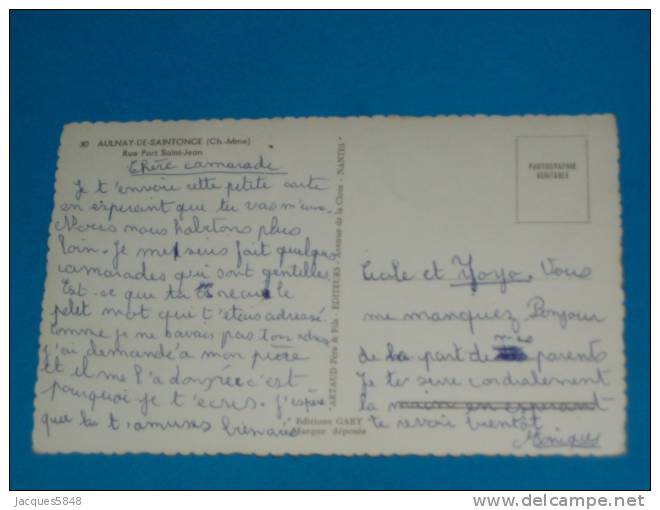 30 AULNAY-DE-SAINTONGE (Ch.-Mme)
Rue Port Saint-Jean
Chère camarade
Je t'envoie cette petite carte
en esperant que tu vas
Nous nous habitons plus
loin. Je me suis fait quelques
camarades qui sont gentilles
Est-ce que tu le
petit mot qui t'etais adressé
comme je ne savais pas ton
j'ai demandé à mon
et il me l'a donnée c'est
pourquoi je t'ecris. J'espère
que tu t'amuses
ARTAUD Père & Fils - EDITEURS - Avenue de la Close - NANTES
Editions GABY
Marque déposée
PHOTOGRAPHIE
VERITABLE
et Yoyo. Vous
me manquez. Bonjour
de la part de mes parents
Je te serre cordialement
la main en esperant
te revoir bientôt
Monique
Jacques5848
delcampe.net